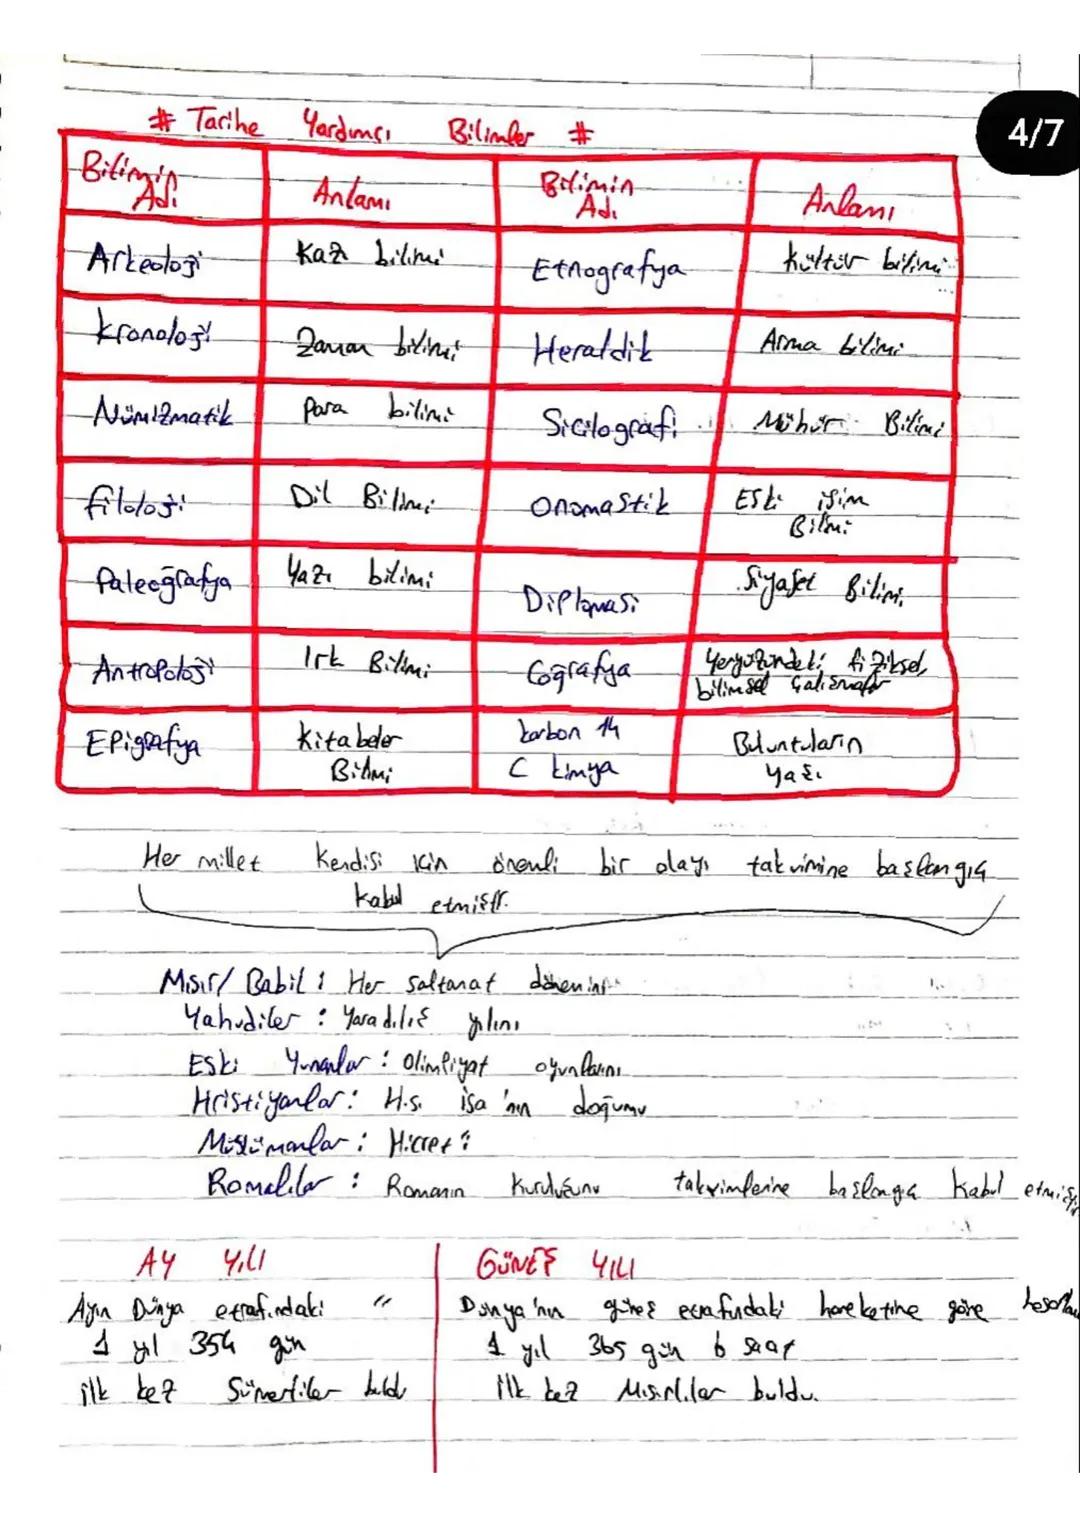 4/7
# Tarihe Yardımcı Bilimler #
Bilimin Adı Anlamı Bilimin Adı Anlamı
Arkeoloji Kazı bilimi Etnografya Kültür bilimi
Kronoloji Zaman bilimi Heraldik Arma bilimi
Nümizmatik Para bilimi Sicilografi Mühür Bilimi
Filoloji Dil Bilimi Onomastik Eski isim Bilimi
Paleoğrafya Yazı bilimi Diplomasi Siyaset Bilimi
Antropoloji Irk Bilimi Coğrafya Yeryüzündeki fiziksel, bilimsel çalışmalar
Epigrafya Kitabeler Bilimi karbon 14 C kimya Buluntuların yaşı
Her millet kendisi için önemli bir olayı takvimine başlangıç
kabul etmiştir.
Mısır/ Babil : Her saltanat dönemini
Yahudiler : Yaradılış yılını
Eski Yunanlar : Olimpiyat oyunlarını
Hristiyanlar : Hs. isa'nın doğumu
Müslümanlar : Hicret'i
Romalılar : Romanın Kuruluşunu takvimlerine başlangıç kabul etmiştir
AY YILI
Ayın Dünya etrafındaki "
1 yıl 354 gün
ilk kez Sümerliler buldu
GÜNEŞ YILI
Dünya'nın güneş etrafındaki hareketine göre
1 yıl 365 gün 6 saat
ilk kez Mısırlılar buldu.